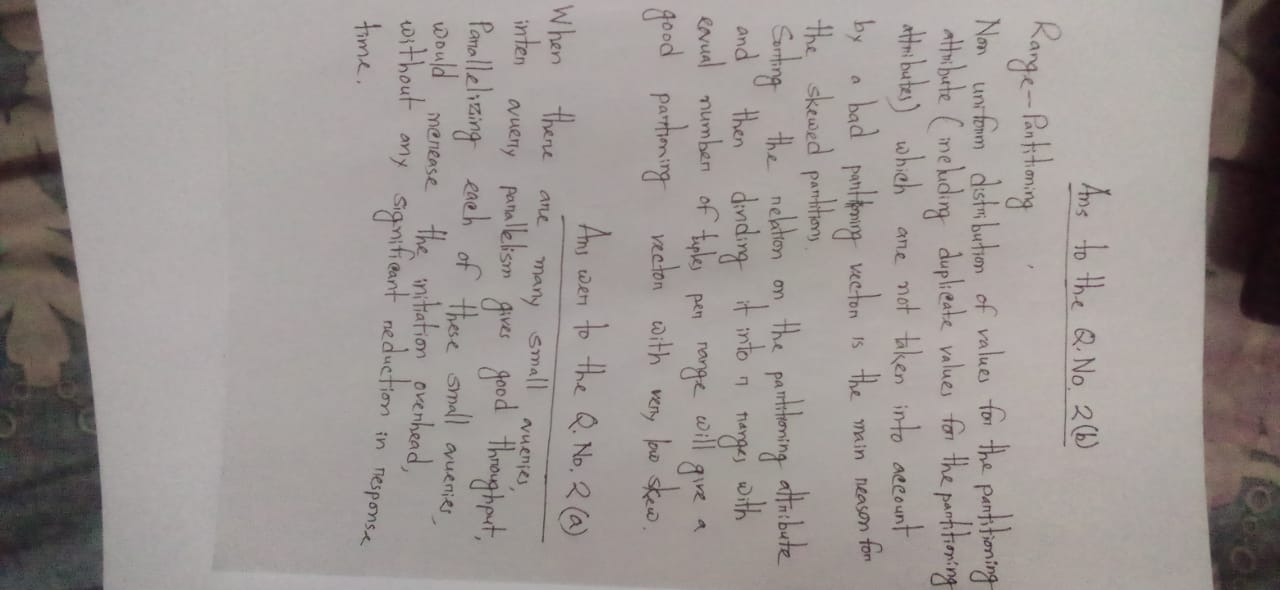 Ans to the Q. No. 2(b)
Range-Partitioning
Non uniform distribution of values for the partitioning
attribute (including duplicate values for the partitioning
attributes) which are not taken into account
by a bad partitioning vector is the main reason for
the skewed partitions.
Sorting the relation on the partitioning attribute
and then dividing it into n ranges with
equal number of tuples per range will give a
good partioning vector with very low skew.
Answer to the Q. No. 2(a)
When there are many small queries,
inter query parallelism gives good throughput,
Parallelizing each of these small queries,
would increase the initiation overhead,
without any significant reduction in response
time.